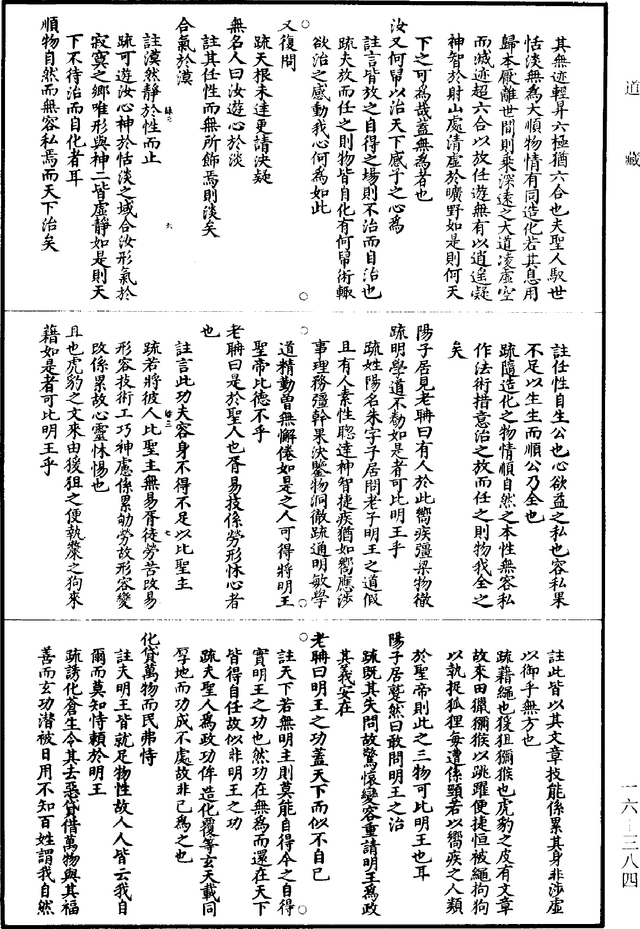 道藏
其無迹輕昇六極猶六合也夫聖人馭世
恬淡無為大順物情有同造化若其息用
歸本厭離世間則乘深遠之大道凌虛空
而滅迹超六合以放任遊無有以逍遙凝
神智於射山處清虛於曠野如是則何天
下之可為哉蓋無為者也
汝又何帠以治天下感予之心為
註言皆放之自得之場則不治而自治也
疏夫放而任之則物皆自化有何帠術輒
欲治之感動我心何為如此
又復問
疏天根未達更請決疑
無名人曰汝遊心於淡
註其任性而無所飾焉則淡矣
合氣於漠
註漠然靜於性而止
疏可遊汝心神於恬淡之域合汝形氣於
寂寞之鄉唯形與神二皆虛靜如是則天
下不待治而自化者耳
順物自然而無容私焉而天下治矣
註任性自生公也心欲益之私也容私果
不足以生生而順公乃全也
疏隨造化之物情順自然之本性無容私
作法術措意治之放而任之則物我全之
矣
陽子居見老聃曰有人於此嚮疾彊梁物徹
疏明學道不勌如是者可比明王乎
疏姓陽名朱字子居問老子明王之道假
且有人素性聰達神智捷疾猶如嚮應涉
事理務彊幹果決鑒物洞徹疏通明敏學
道精勤曾無懈倦如是之人可得將明王
聖帝比德不乎
老聃曰是於聖人也胥易技係勞形怵心者
也
註言此功夫容身不得不足以比聖主
疏若將彼人比聖主無易胥徒勞苦改易
形容技術工巧神慮係累劬勞故形容變
改係累故心靈怵惕也
且也虎豹之文來田猨狙之便執斄之狗來
藉如是者可比明王乎
註此皆以其文章技能係累其身非涉虛
以御乎無方也
疏藉繩也猨狙獼猴也虎豹之皮有文章
故來田獵獼猴以跳躍便捷恒被繩拘狗
以執捉狐狸每遭係頸若以嚮疾之人類
於聖帝則此之三物可比明王也耳
陽子居蹵然曰敢問明王之治
疏既其失問故驚懷變容重請明王為政
其義安在
老聃曰明王之功蓋天下而似不自己
註天下若無明主則莫能自得今之自得
實明王之功也然功在無為而還在天下
皆得自任故似非明王之功
疏夫聖人為政功侔造化覆等玄天載同
厚地而功成不處故非己為之也
化貸萬物而民弗恃
註夫明王皆就足物性故人人皆云我自
爾而莫知恃賴於明王
疏誘化蒼生令其去惡貸借萬物與其福
善而玄功潛被日用不知百姓謂我自然
一六—三八四